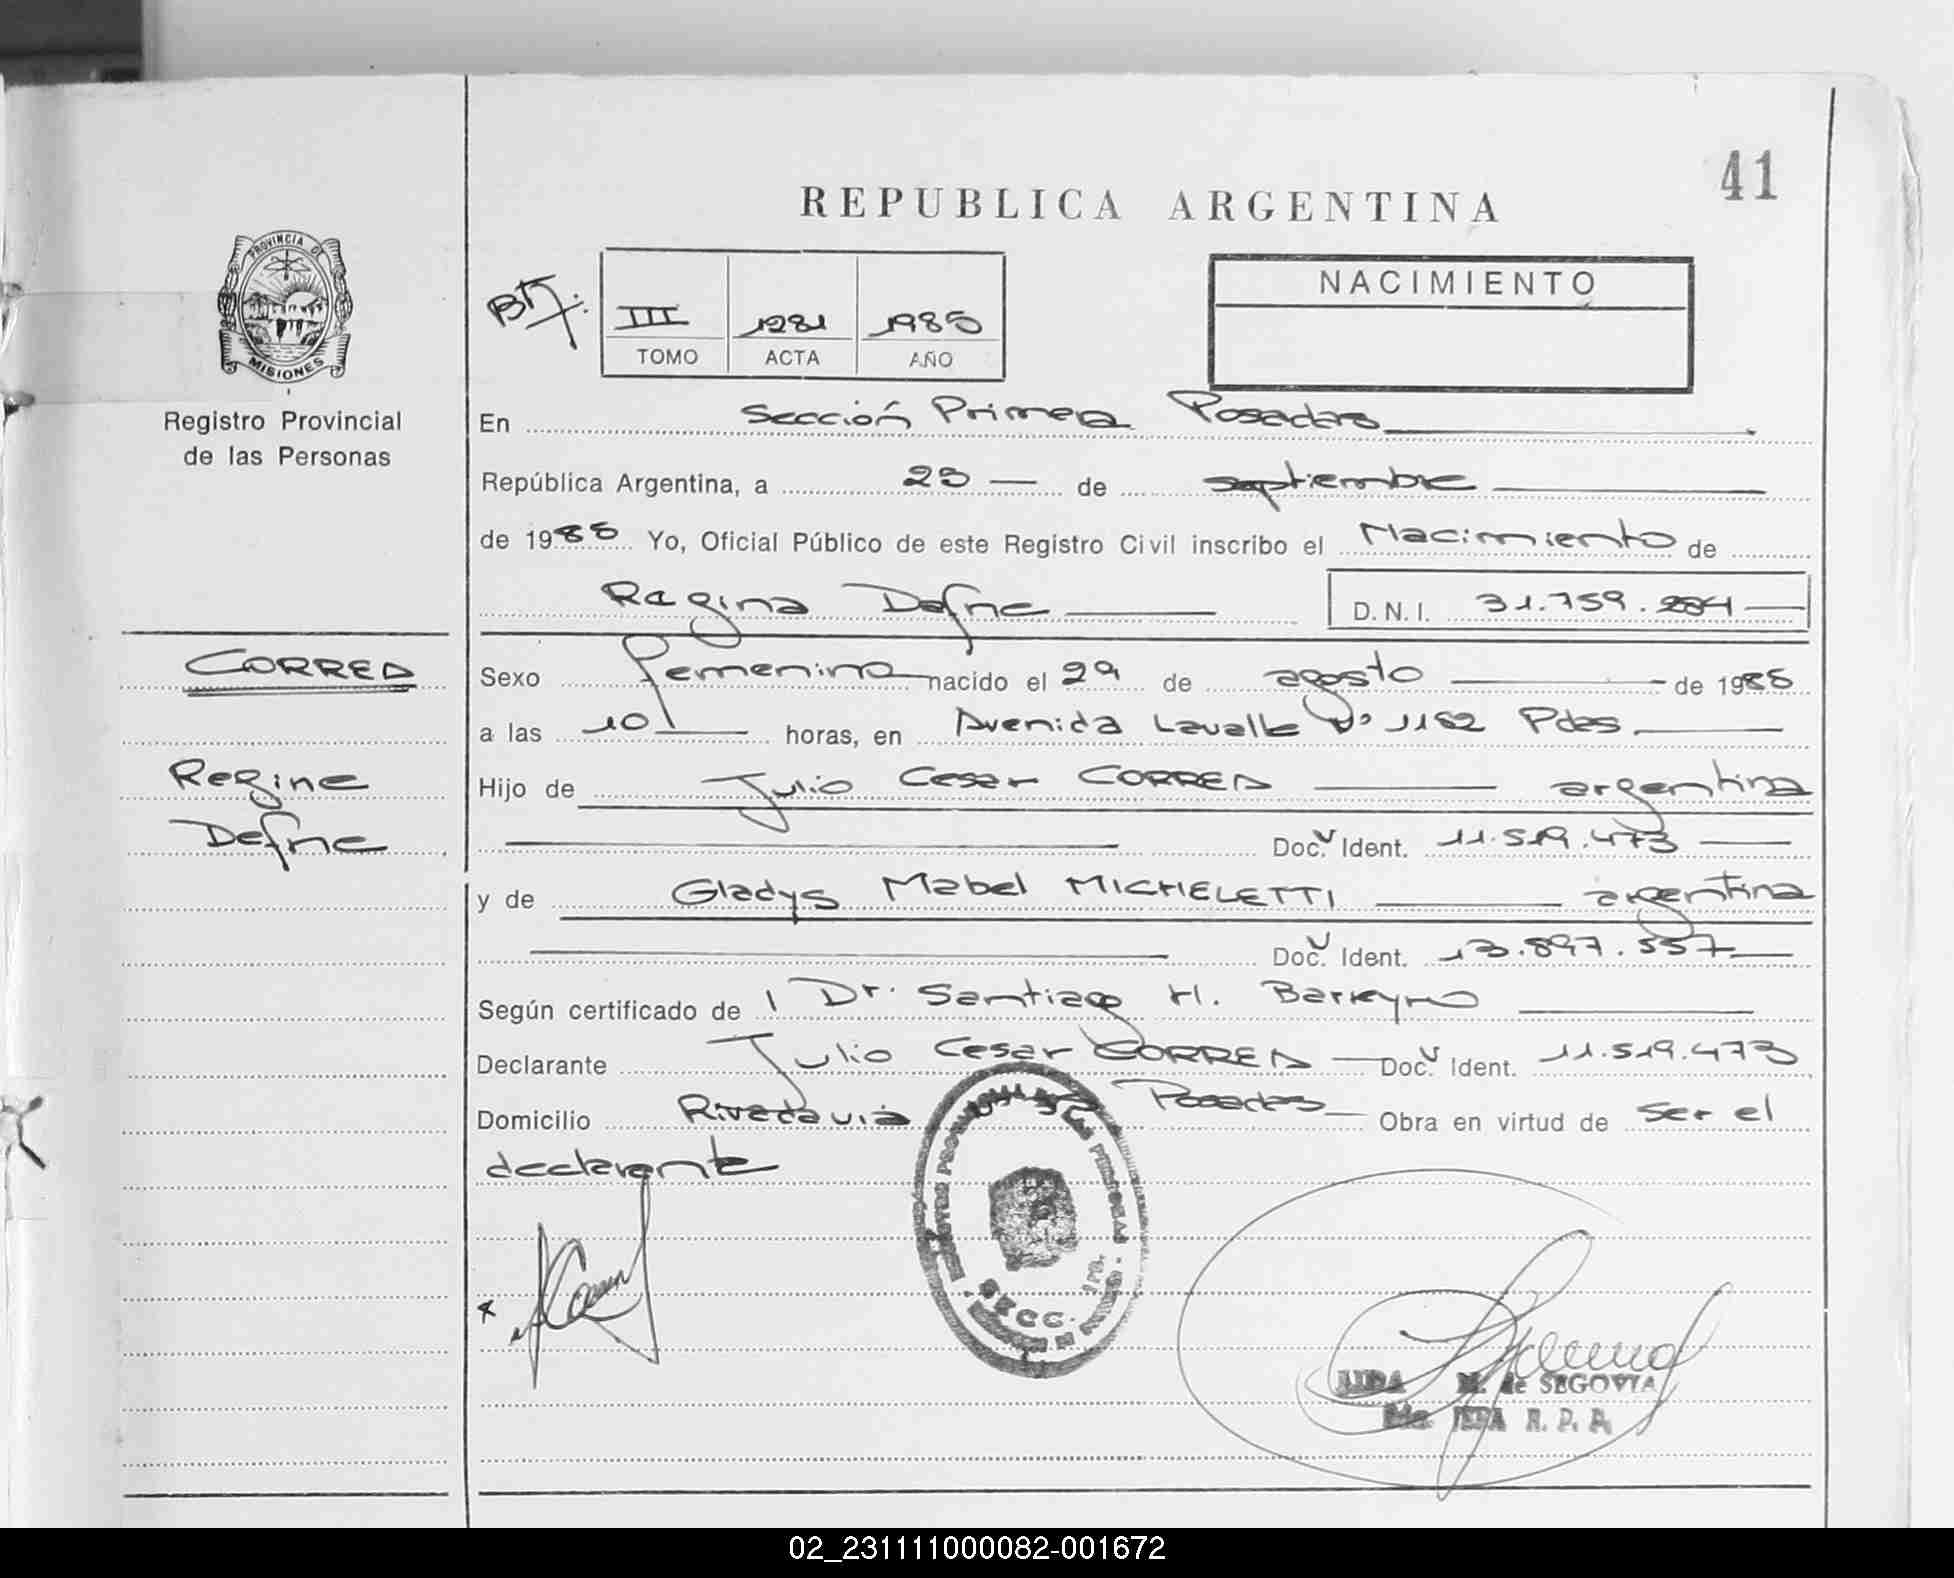 41
REPUBLICA ARGENTINA
PROVINCIA DE
MISIONES
Registro Provincial
de las Personas
III 1281 1985
TOMO ACTA AÑO
NACIMIENTO
En Sección Primera Posadas
República Argentina, a 23 de septiembre
de 1985 Yo, Oficial Público de este Registro Civil inscribo el Nacimiento de
Regina Dafne D.N.I. 31.759.284
CORREA
Sexo femenino nacido el 29 de agosto de 1985
a las 10 horas, en Avenida Lavalle Nº 1152 Pdas
Regina
Dafne
Hijo de Julio Cesar CORREA argentina
Doc. Ident. 11.519.473
y de Gladys Mabel MICHELETTI argentina
Doc. Ident. 13.897.557
Según certificado de Dr. Santiago H. Barreyro
Declarante Julio Cesar CORREA Doc. Ident. 11.519.473
Domicilio Rivadavia Posadas Obra en virtud de ser el
declarante
SECC. 1ra.
M. de SEGOVIA
JEFA R. P. P.
02_231111000082-001672